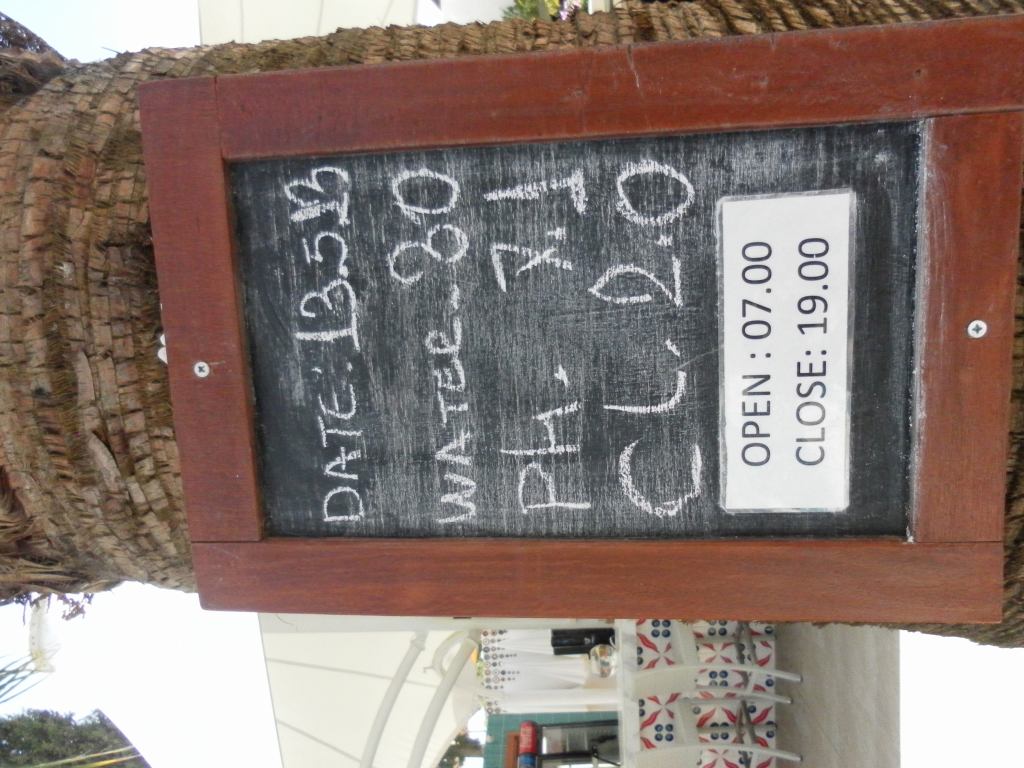 DATE: 13.5.13
WATER_80
PH. 7.1
CL. 2.0
OPEN : 07.00
CLOSE: 19.00